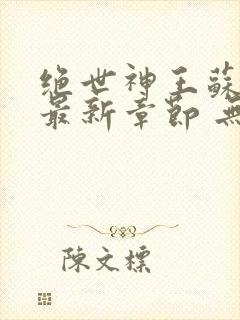 绝世神王蘇
最新章節 無
陳文標